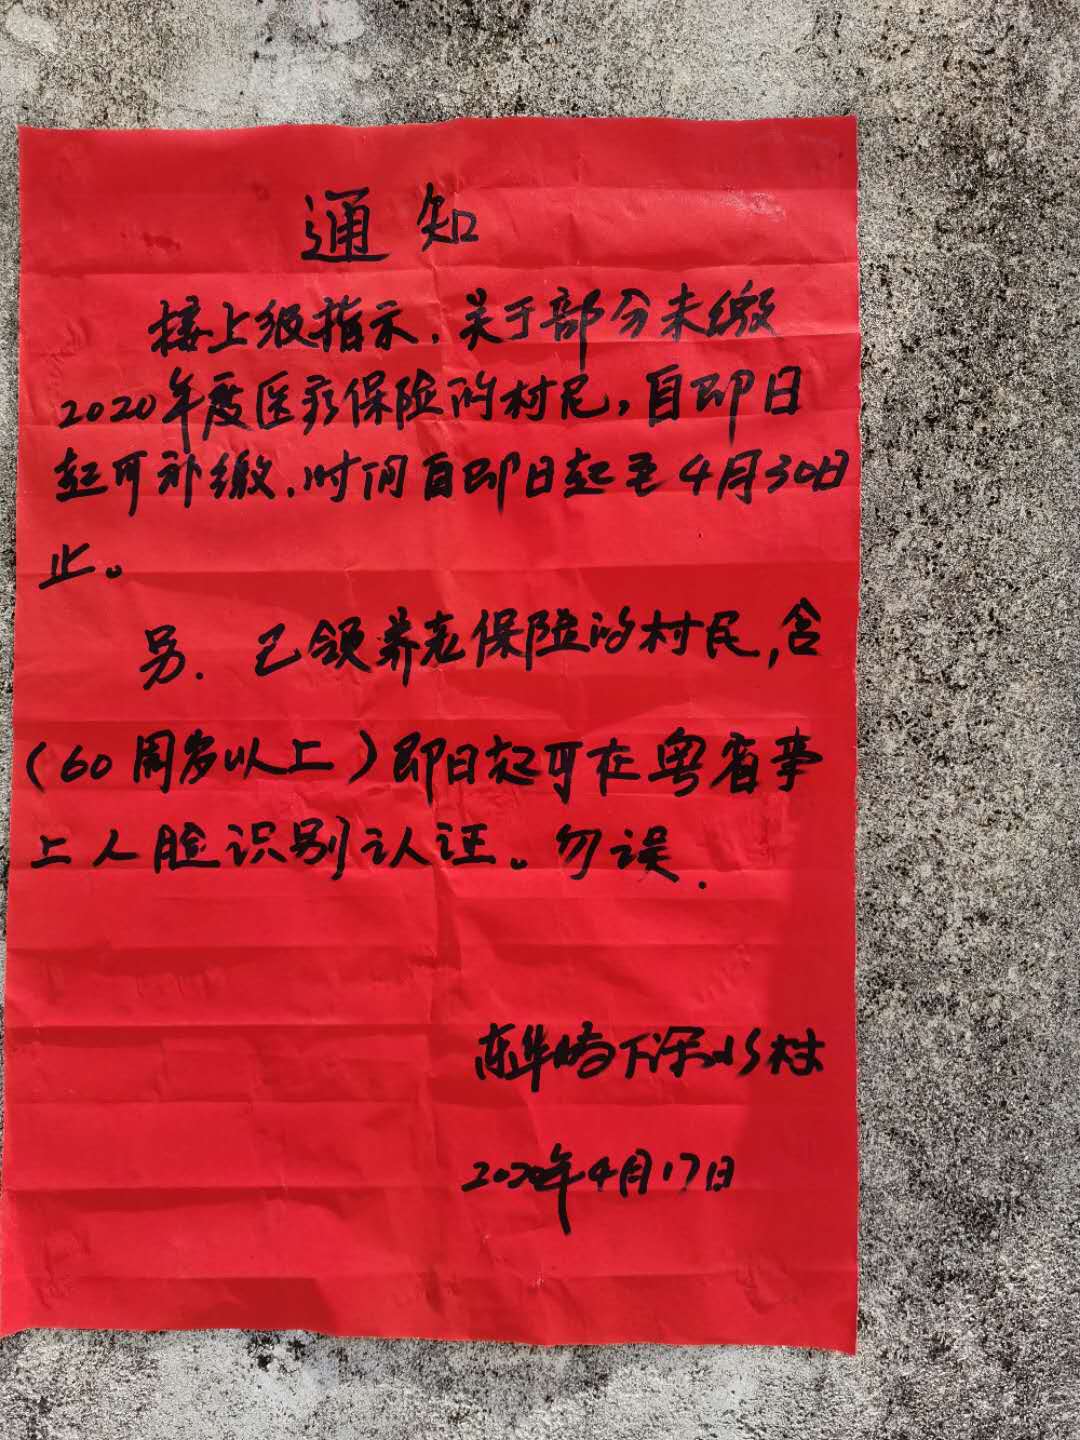 通知
接上级指示,关于部分未缴
2020年度医疗保险的村民,自即日
起可补缴,时间自即日起至4月30日
止。
另.已领养老保险的村民,含
(60周岁以上)即日起可在粤省事
上人脸识别认证。勿误.
东华下深水村
2020年4月17日